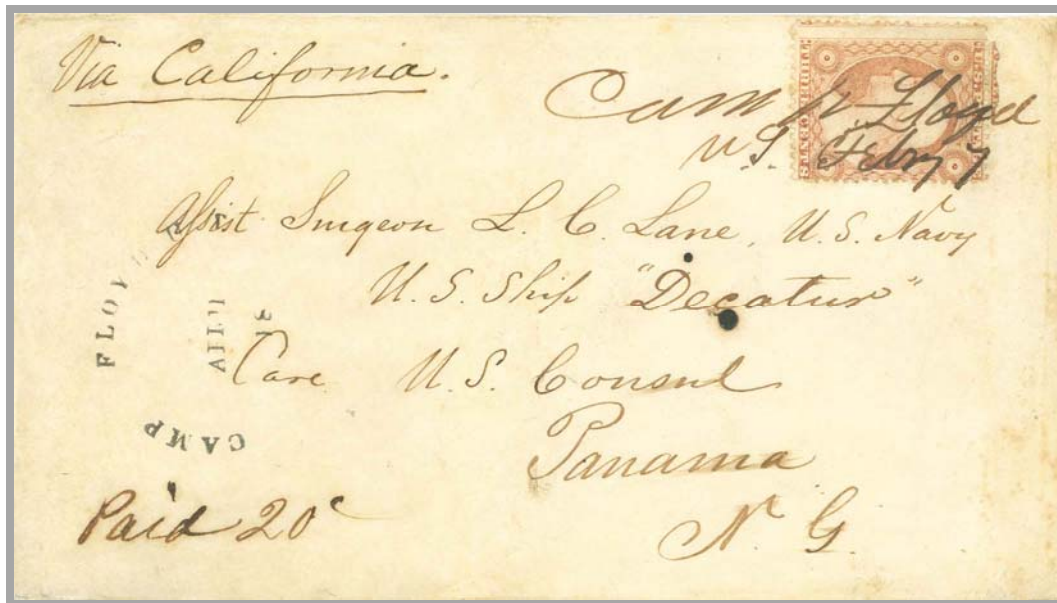 Via California.
Camp Floyd
Feby 7
Assist Surgeon L. C. Lane, U.S. Navy
U.S. Ship "Decatur"
Care U.S. Consul
Panama
N. G.
CAMP FLOYD
Paid 20c